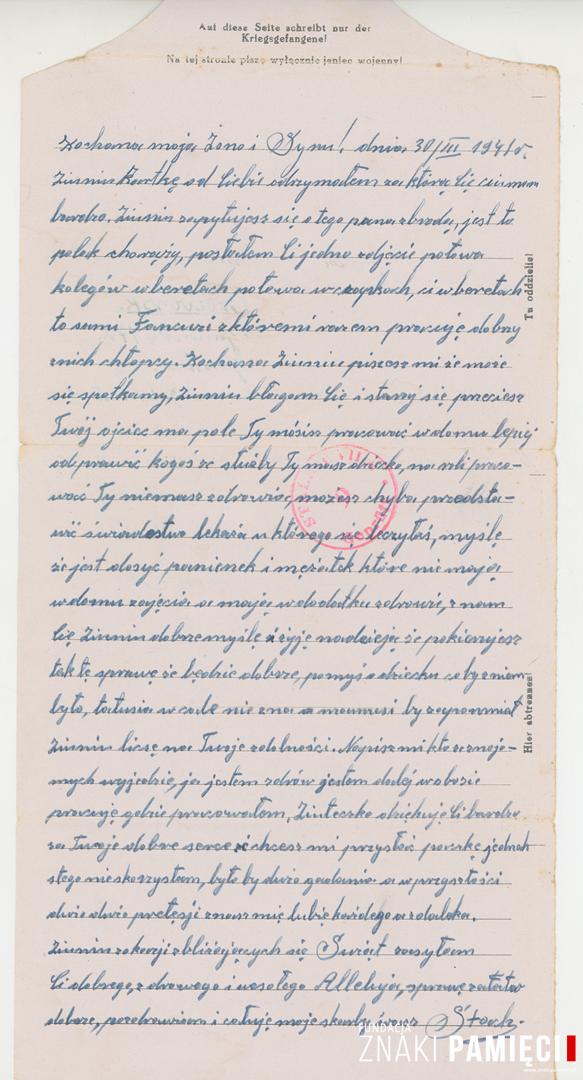 Auf diese Seite schreibt nur der
Kriegsgefangene!
Na tej stronie pisze wyłącznie jeniec wojenny!
Kochana moja Żono i Synu! dnia 30/III 1941 r.
Ziuniu Kartkę od Ciebie odrzymałem za którą Cię
bardzo. Ziuniu zapytujesz się o tego pana z brodą, jest to
polak chorąży, posłałem Ci jedno zdjęcie połowa
kolegów w beretach połowa w czapkach, ci w beretach
to sami Fancuzi z któremi razem pracuję dobrzy
z nich chłopcy. Kochana Ziuniu piszesz mi że może
się spotkamy, Ziuniu błagam Cię i staraj się przeciesz
Twój ojciec ma pole Ty mósisz pracować w domu lepiej
odprawić kogoś ze służby Ty masz dziecko, na roli praco-
wać Ty niemasz zdrowia, możesz chyba przedsta-
wić świadestwo lekaża u którego się leczyłaś, myślę
że jest dosyć panienek i mężatek które nie mają
w domu zajęcia a mają w dodatku zdrowie, znam
Cię Ziuniu dobrze myślę i żyję nadzieją że pokierujesz
tak tę sprawę że będzie dobrze, pomyś o dziecku co by z niem
było, tatusia wcale nie zna a mamusi by zapomniał
Ziuniu liczę na Twoje zdolności. Napisz mi kto ze znajo-
mych wyjedzie, ja jestem zdrów jestem dalej w obozie
pracuję gdzie pracowałem, Ziuteczko dziękuję Ci bardzo
za Twoje dobre serce że chcesz mi przysłać paczkę jednak
z tego nieskorzystam, było by dużo gadania a w przyszłości
dużo dużo pretęsji znasz mię lubię każdego a zdaleka.
Ziuniu z okazji zbliżających się Świąt zasyłam
Ci dobrego, zdrowego i wesołego Alleluja, sprawę załatw
dobrze, pozdrawiam i całuję moje skarby Stach.
Tu oddzielić!
Hier abtrennen!
STALAG
9
Geprüft
FUNDACJA
ZNAKI PAMIĘCI